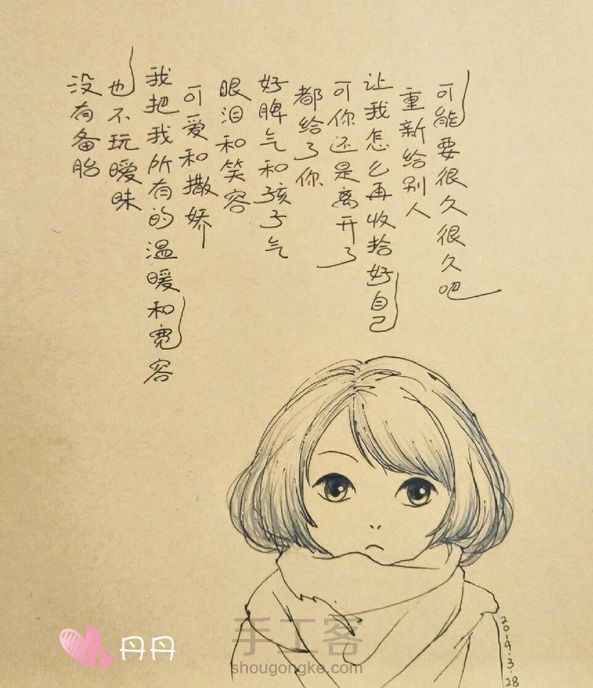 没有备胎
也不玩暧昧
我把我所有的温暖和宽容
可爱和撒娇
眼泪和笑容
好脾气和孩子气
都给了你
可你还是离开了
让我怎么再收拾好自己
重新给别人
可能要很久很久吧
丹丹
手工客
shougongke.com
2019.3.28